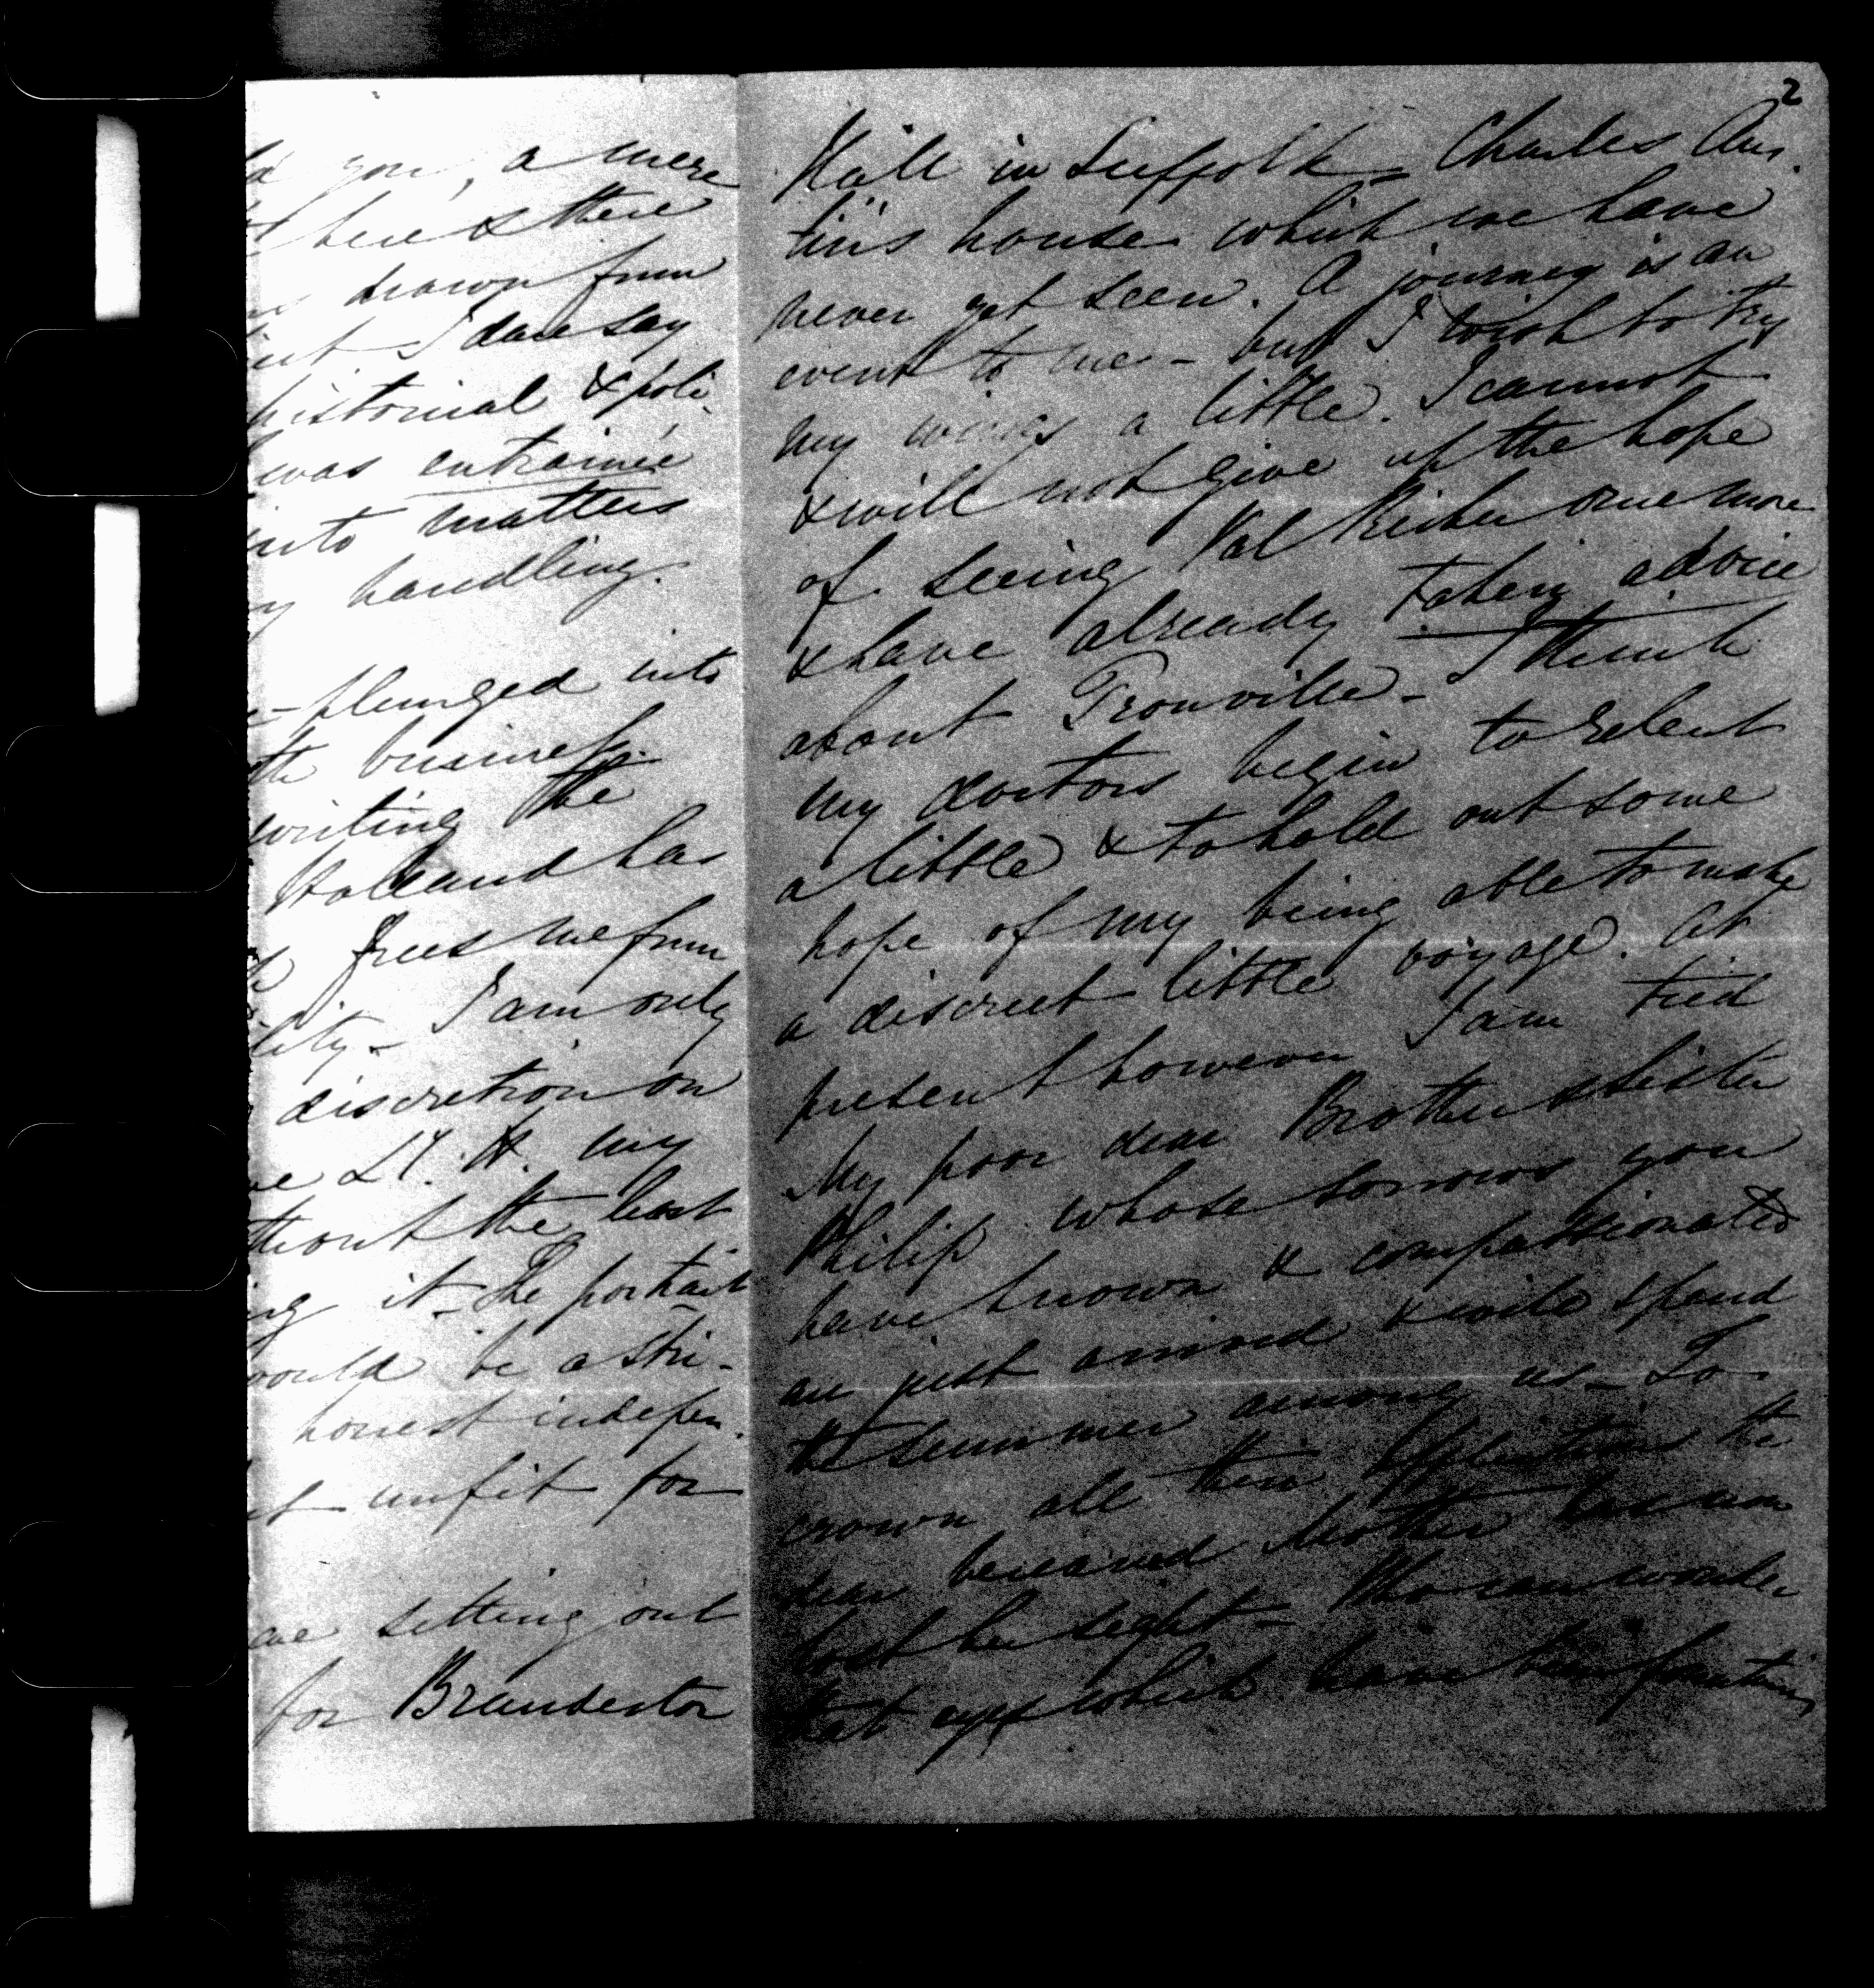 you, a mere
here & there
drawn from
I dare say
historical & poli-
was entrainée
into matters
handling.
plunged into
business.
writing the
Holland has
frees me from
I am only
discretion on
Ly. H. my
the least
it - The portrait
would be a stri-
honest indepen-
unfit for
setting out
for Brandeston
2
Hall in Suffolk - Charles Aus-
tin's house which we have
never yet seen. A journey is an
event to me - but I wish to try
my wings a little. I cannot
& will not give up the hope
of seeing Val Richer once more
& have already taken advice
about Trouville - I think
my doctors begin to relent
a little & to hold out some
hope of my being able to make
a discreet little voyage. At
present however I am tied
My poor dear Brother & Sister
Philip whose sorrows you
have known & compassionated
are just arrived & will spend
the summer among us - To
crown all their afflictions the
dear bereaved Mother has now
lost her sight - Who can wonder
that eyes which have been fountains